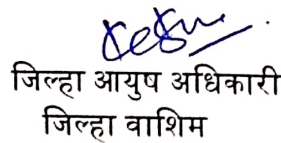 जिल्हा आयुष अधिकारी
जिल्हा वाशिम